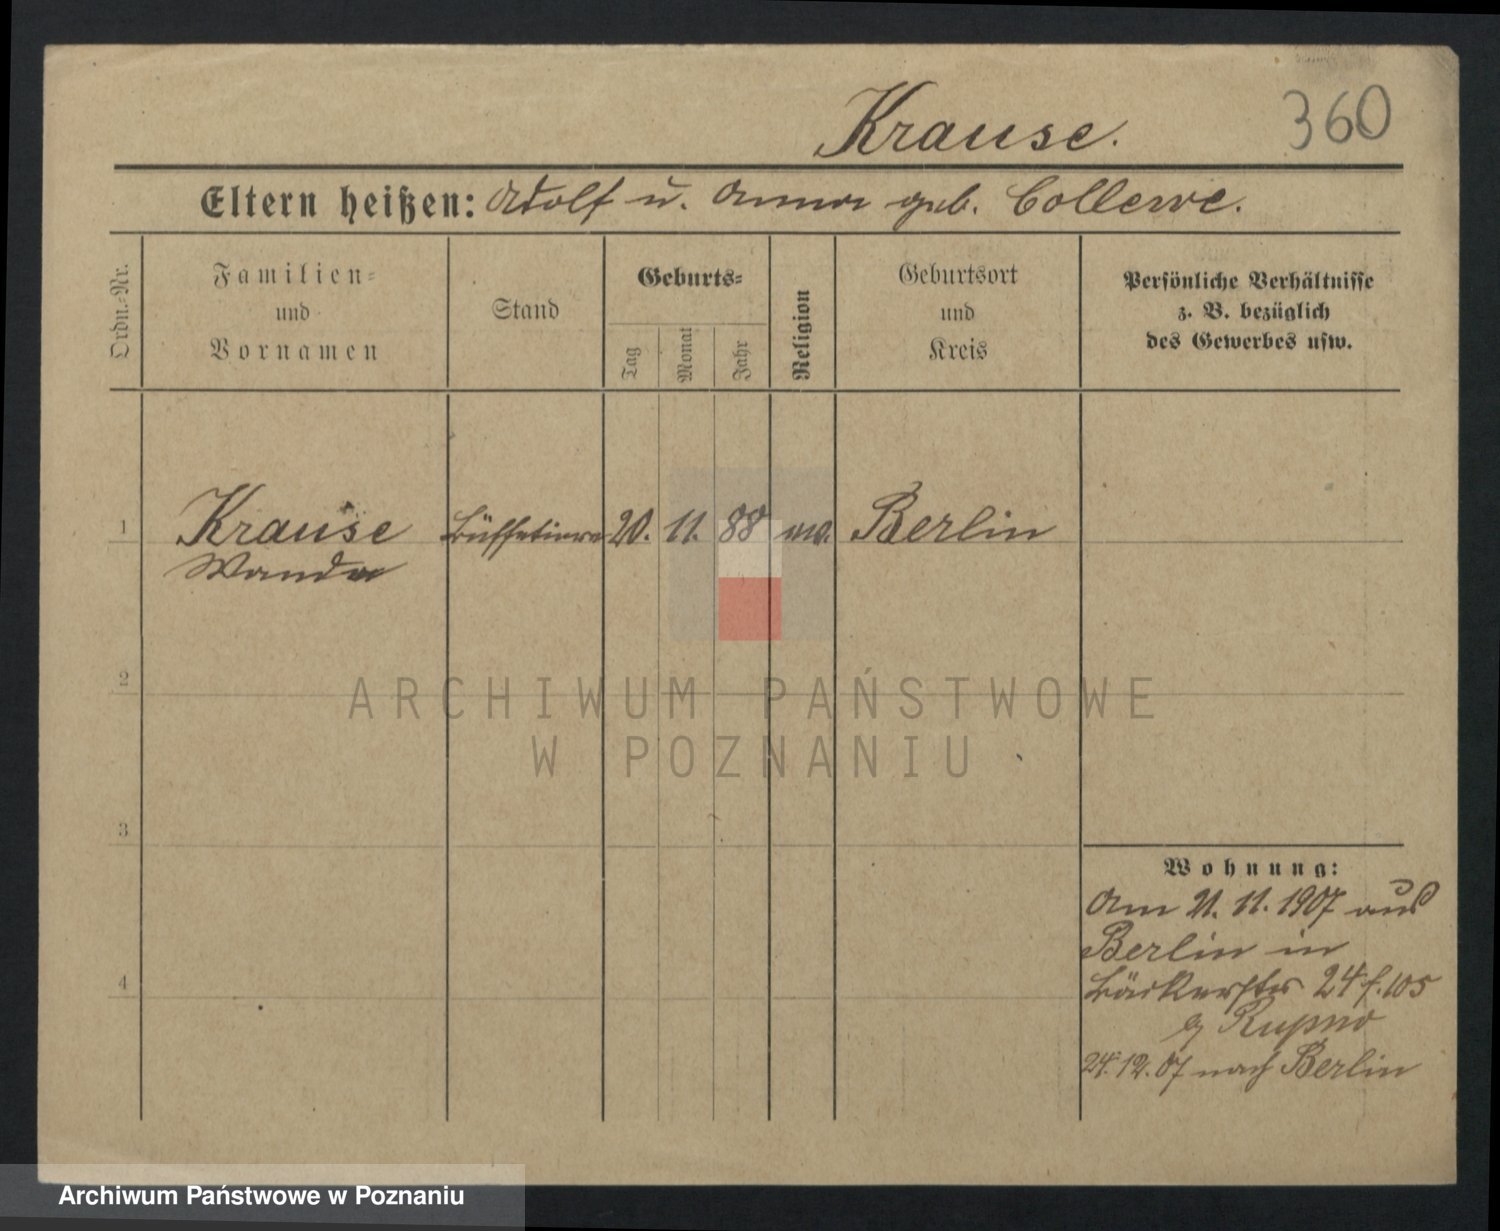 Krause.
360
Eltern heißen: Adolf u. Anna geb. Collerre.
Ordn.-Nr.
Familien-
und
Vornamen
Stand
Geburts-
Tag
Monat
Jahr
Religion
Geburtsort
und
Kreis
Persönliche Verhältnisse
z. B. bezüglich
des Gewerbes usw.
1
Krause
Wanda
Büffetiere
20.
11.
88
ev.
Berlin
2
ARCHIWUM PAŃSTWOWE
W POZNANIU
3
4
Wohnung:
Am 21. 11. 1907 aus
Berlin in
Bäckerstr 24 f. 105
24.12.07 nach Berlin
Archiwum Państwowe w Poznaniu